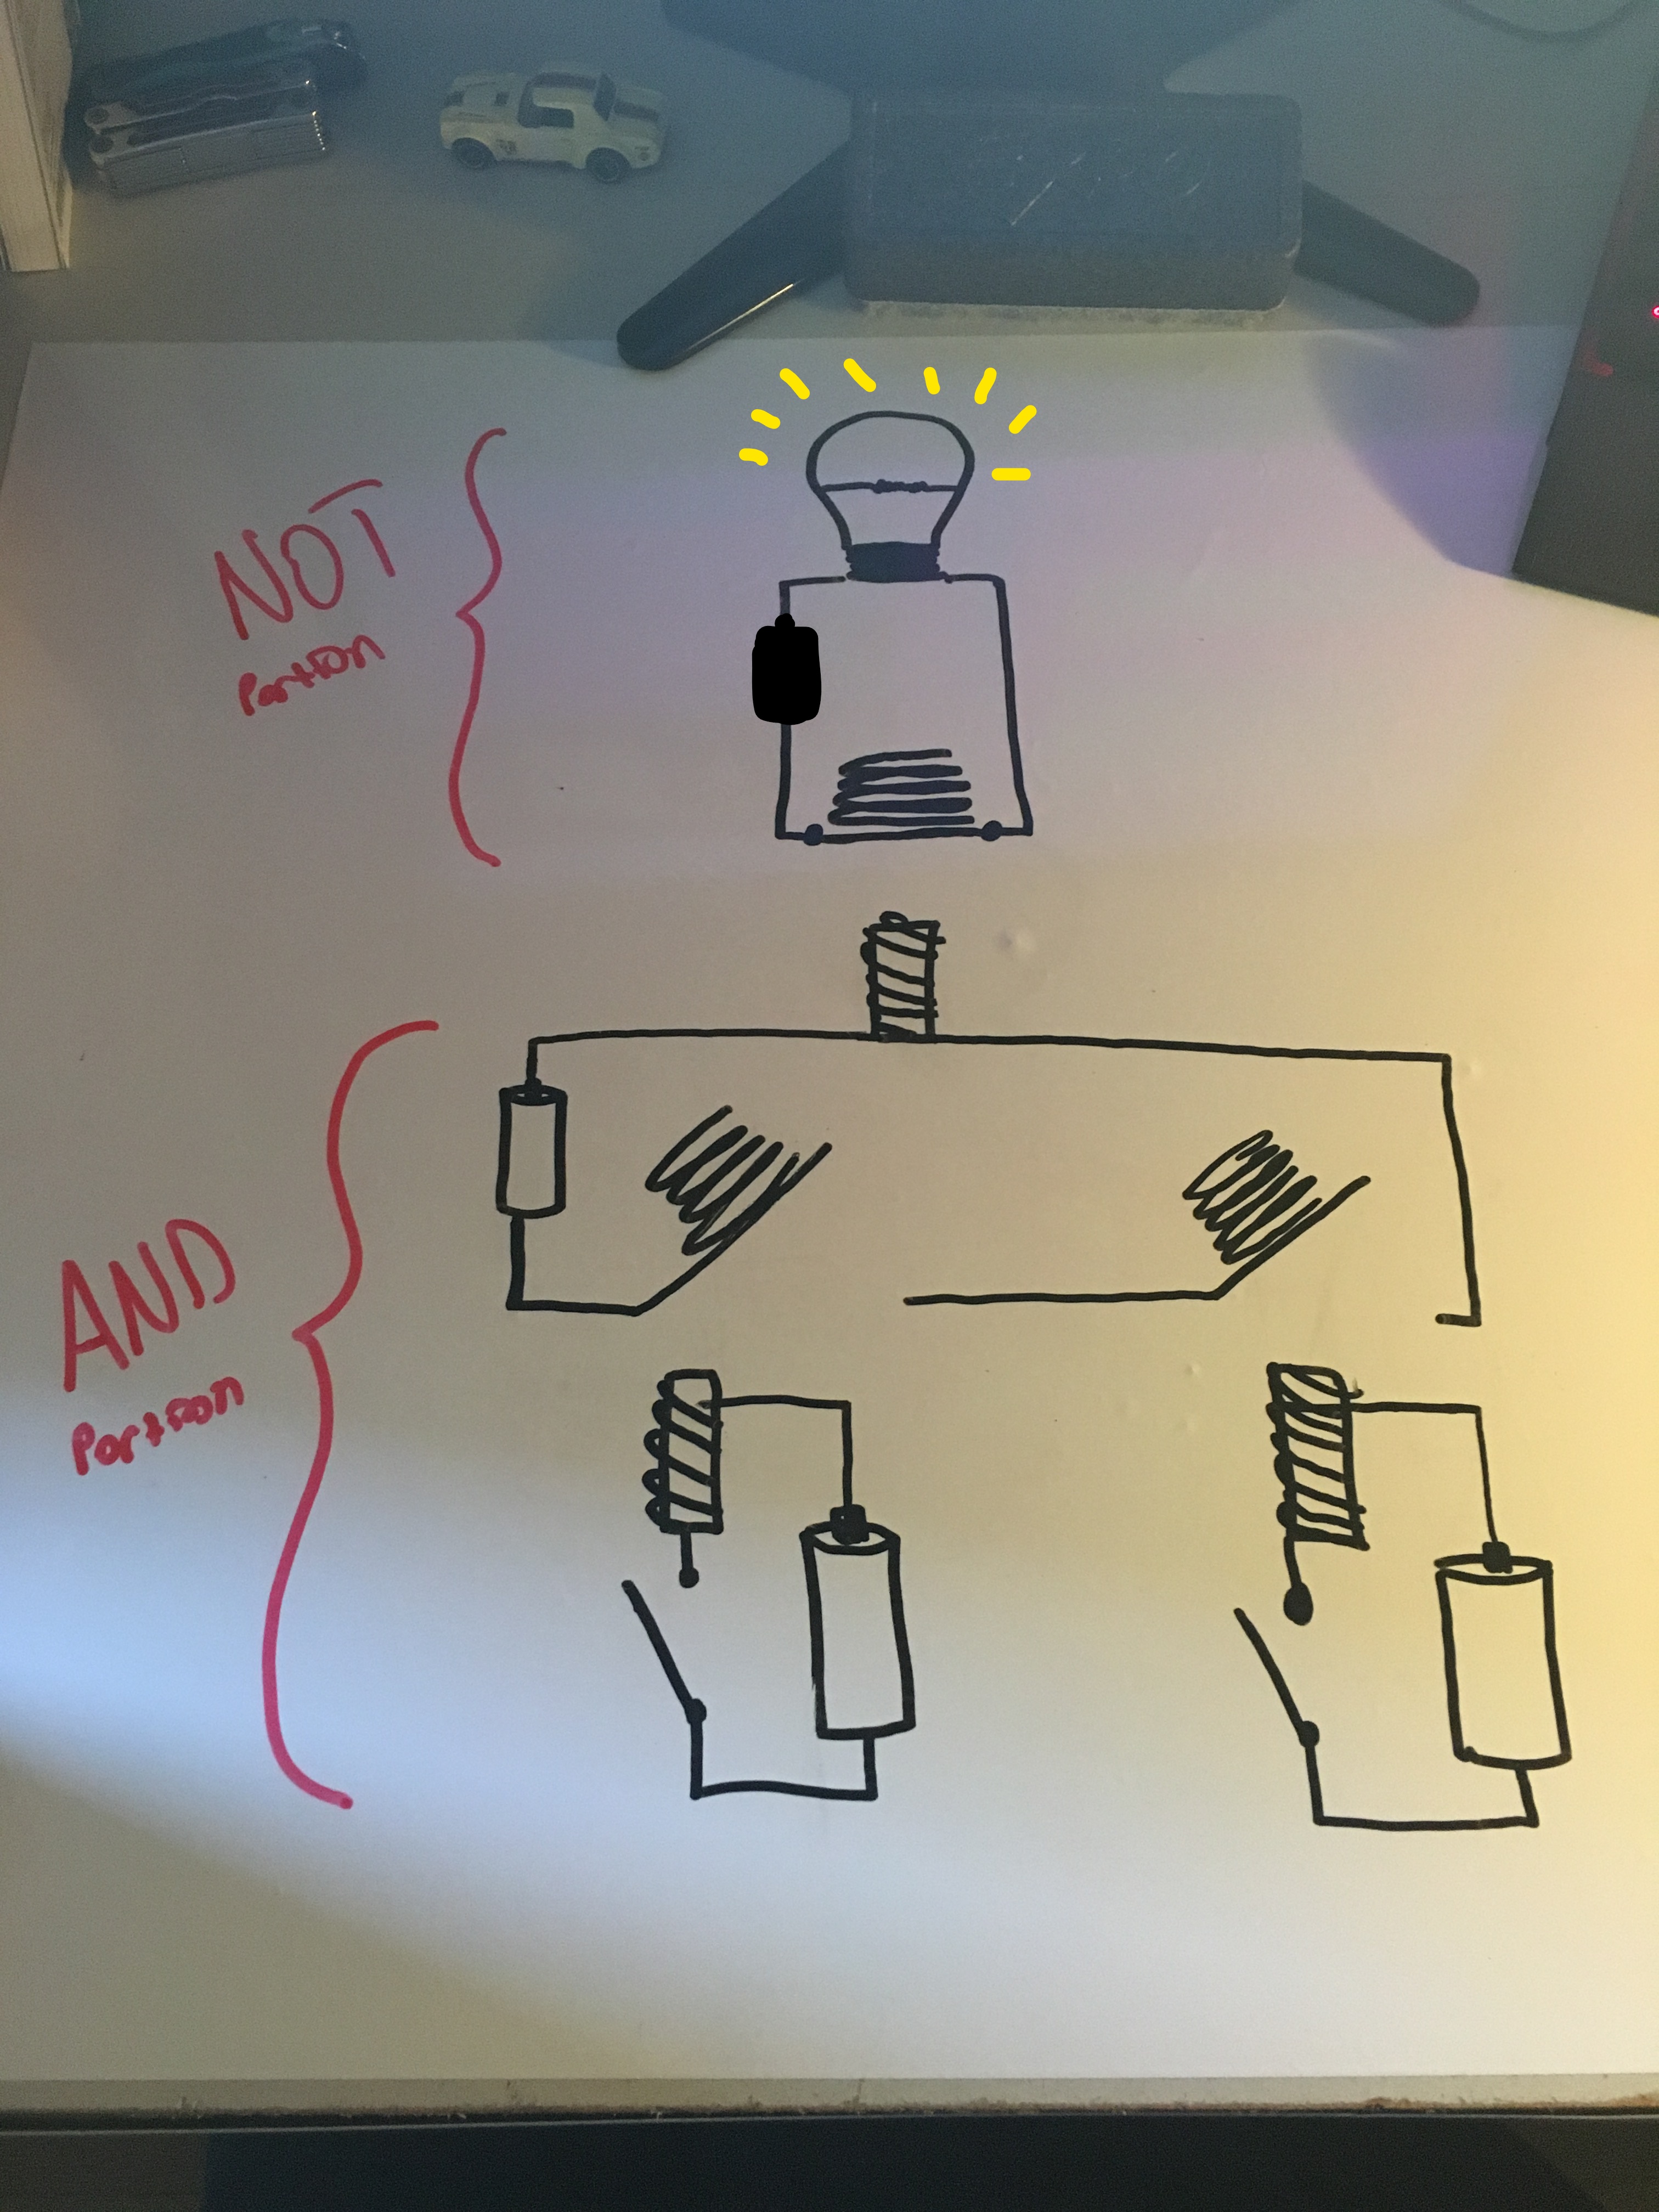 NOT
Portion
AND
Portion